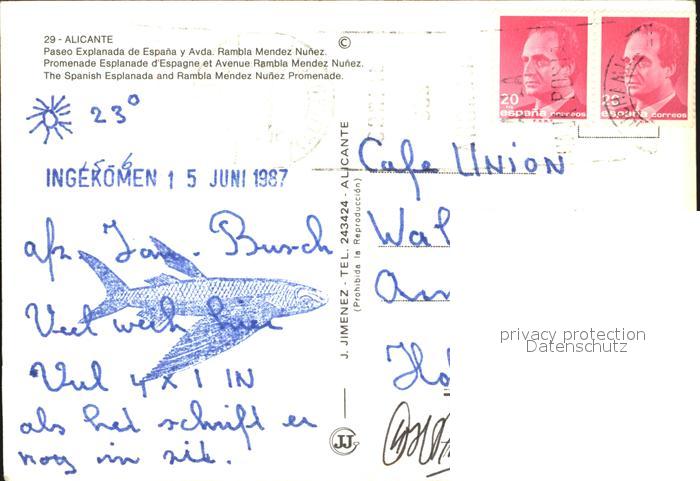 29 - ALICANTE
Paseo Explanada de España y Avda. Rambla Mendez Nuñez.
Promenade Esplanade d'Espagne et Avenue Rambla Mendez Nuñez.
The Spanish Esplanada and Rambla Mendez Nuñez Promenade.
©
23°
INGEKOMEN 1 5 JUNI 1987
afz. Jan. Busch
Veel werk hier
Vul 4 X 1 IN
als het schrift er
nog in zit.
J. JIMENEZ - TEL. 243424 - ALICANTE
(Prohibida la Reproducción)
JJ
20
españa correos
españa correos
Cafe UNION
Wal
An
Ho
privacy protection
Datenschutz